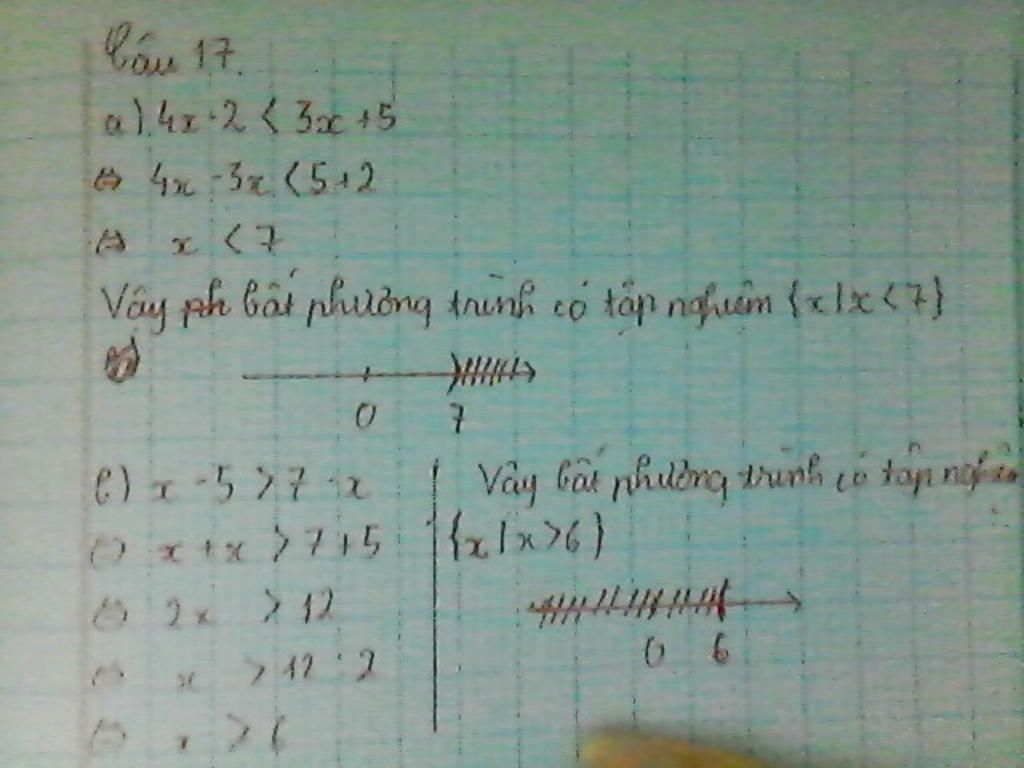 Câu 17.
a) 4x - 2 < 3x + 5
⇔ 4x - 3x < 5 + 2
⇔ x < 7
Vậy bất phương trình có tập nghiệm {x | x < 7}
0 7
b) x - 5 > 7 - x
⇔ x + x > 7 + 5
⇔ 2x > 12
⇔ x > 12 : 2
⇔ x > 6
Vậy bất phương trình có tập nghiệm
{x | x > 6}
0 6